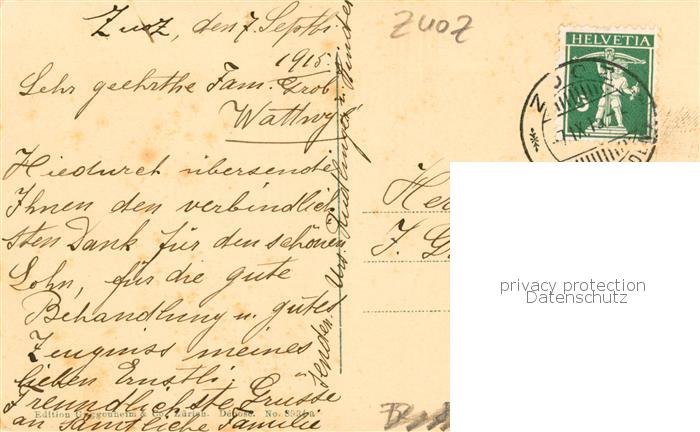 Zuoz, den 7. Septbr.
1915.
Sehr geehrthe Fam. Grob
Wattwyl
Hiedurch übersende
Ihnen den verbindlich-
sten Dank für den schönen
Lohn, für die gute
Behandlung u. gutes
Zeugniss meines
lieben Ernstli
Freundlichste Grüsse
an Sämtliche Familie
Sender:
ZUOZ
HELVETIA
ZUOZ
He
F. G
Edition Guggenheim & Co., Zürich. Déposé. No.
privacy protection
Datenschutz